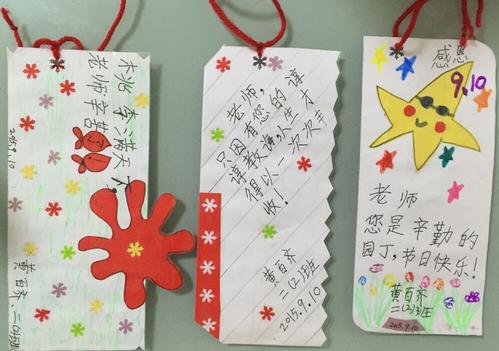 桃李满天下
老师辛苦
2015.9.10
黄百齐 二(2)班
老师,
只因有您的谆
谆教诲,人生才
得以一次次丰
收!
黄百齐
二(2)班
2015.9.10
感恩
9.10
老师
您是辛勤的
园丁,节日快乐!
黄百齐
二(2)班
2015.9.10